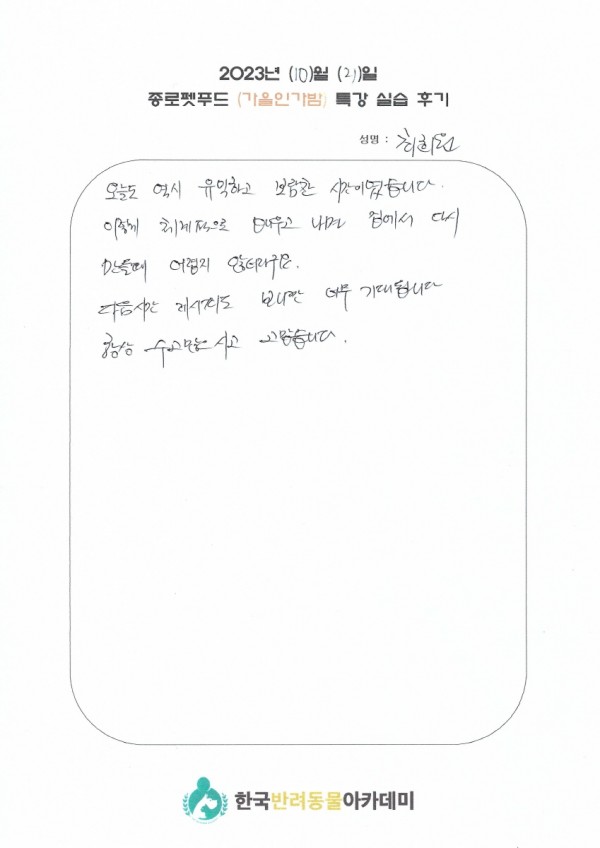 2023년 (10)월 (21)일
종로펫푸드 (가을인가밤) 특강 실습 후기
성명 : 최희원
오늘도 역시 유익하고 보람찬 시간이였습니다.
이렇게 체계적으로 배우고 나면 집에서 다시
만들때 어렵지 않더라구요.
다음시간 레시피도 보니깐 너무 기대됩니다
항상 수고많으시고 고맙습니다.
한국반려동물아카데미